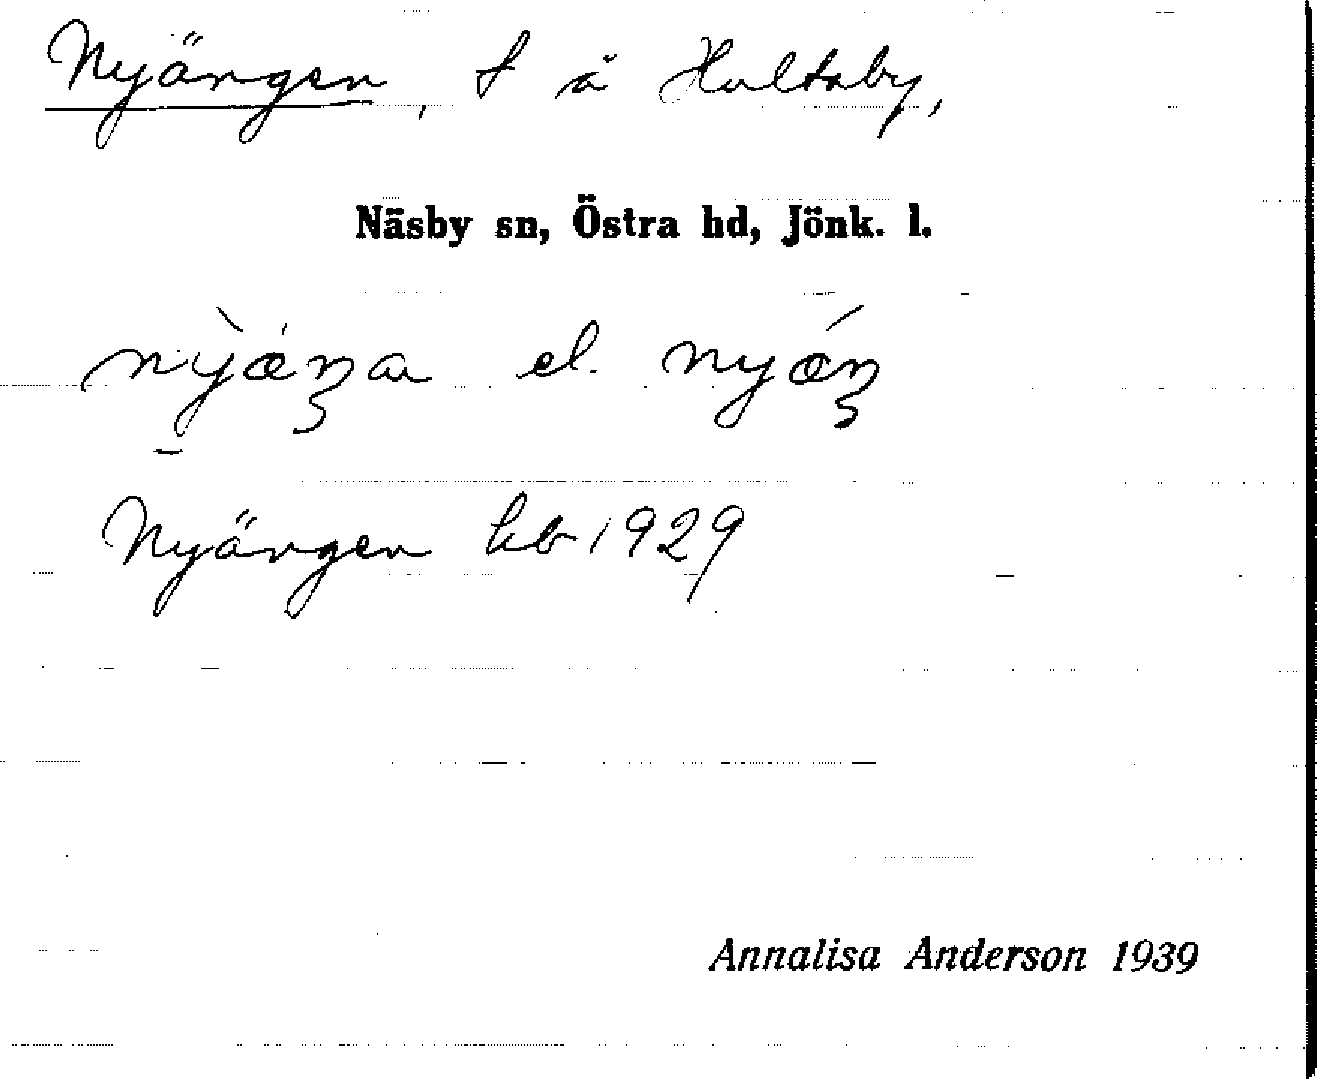 Nyängen, t å Hultaby,
Näsby sn, Östra hd, Jönk. l.
el.
Nyängen hb 1929
Annalisa Anderson 1939